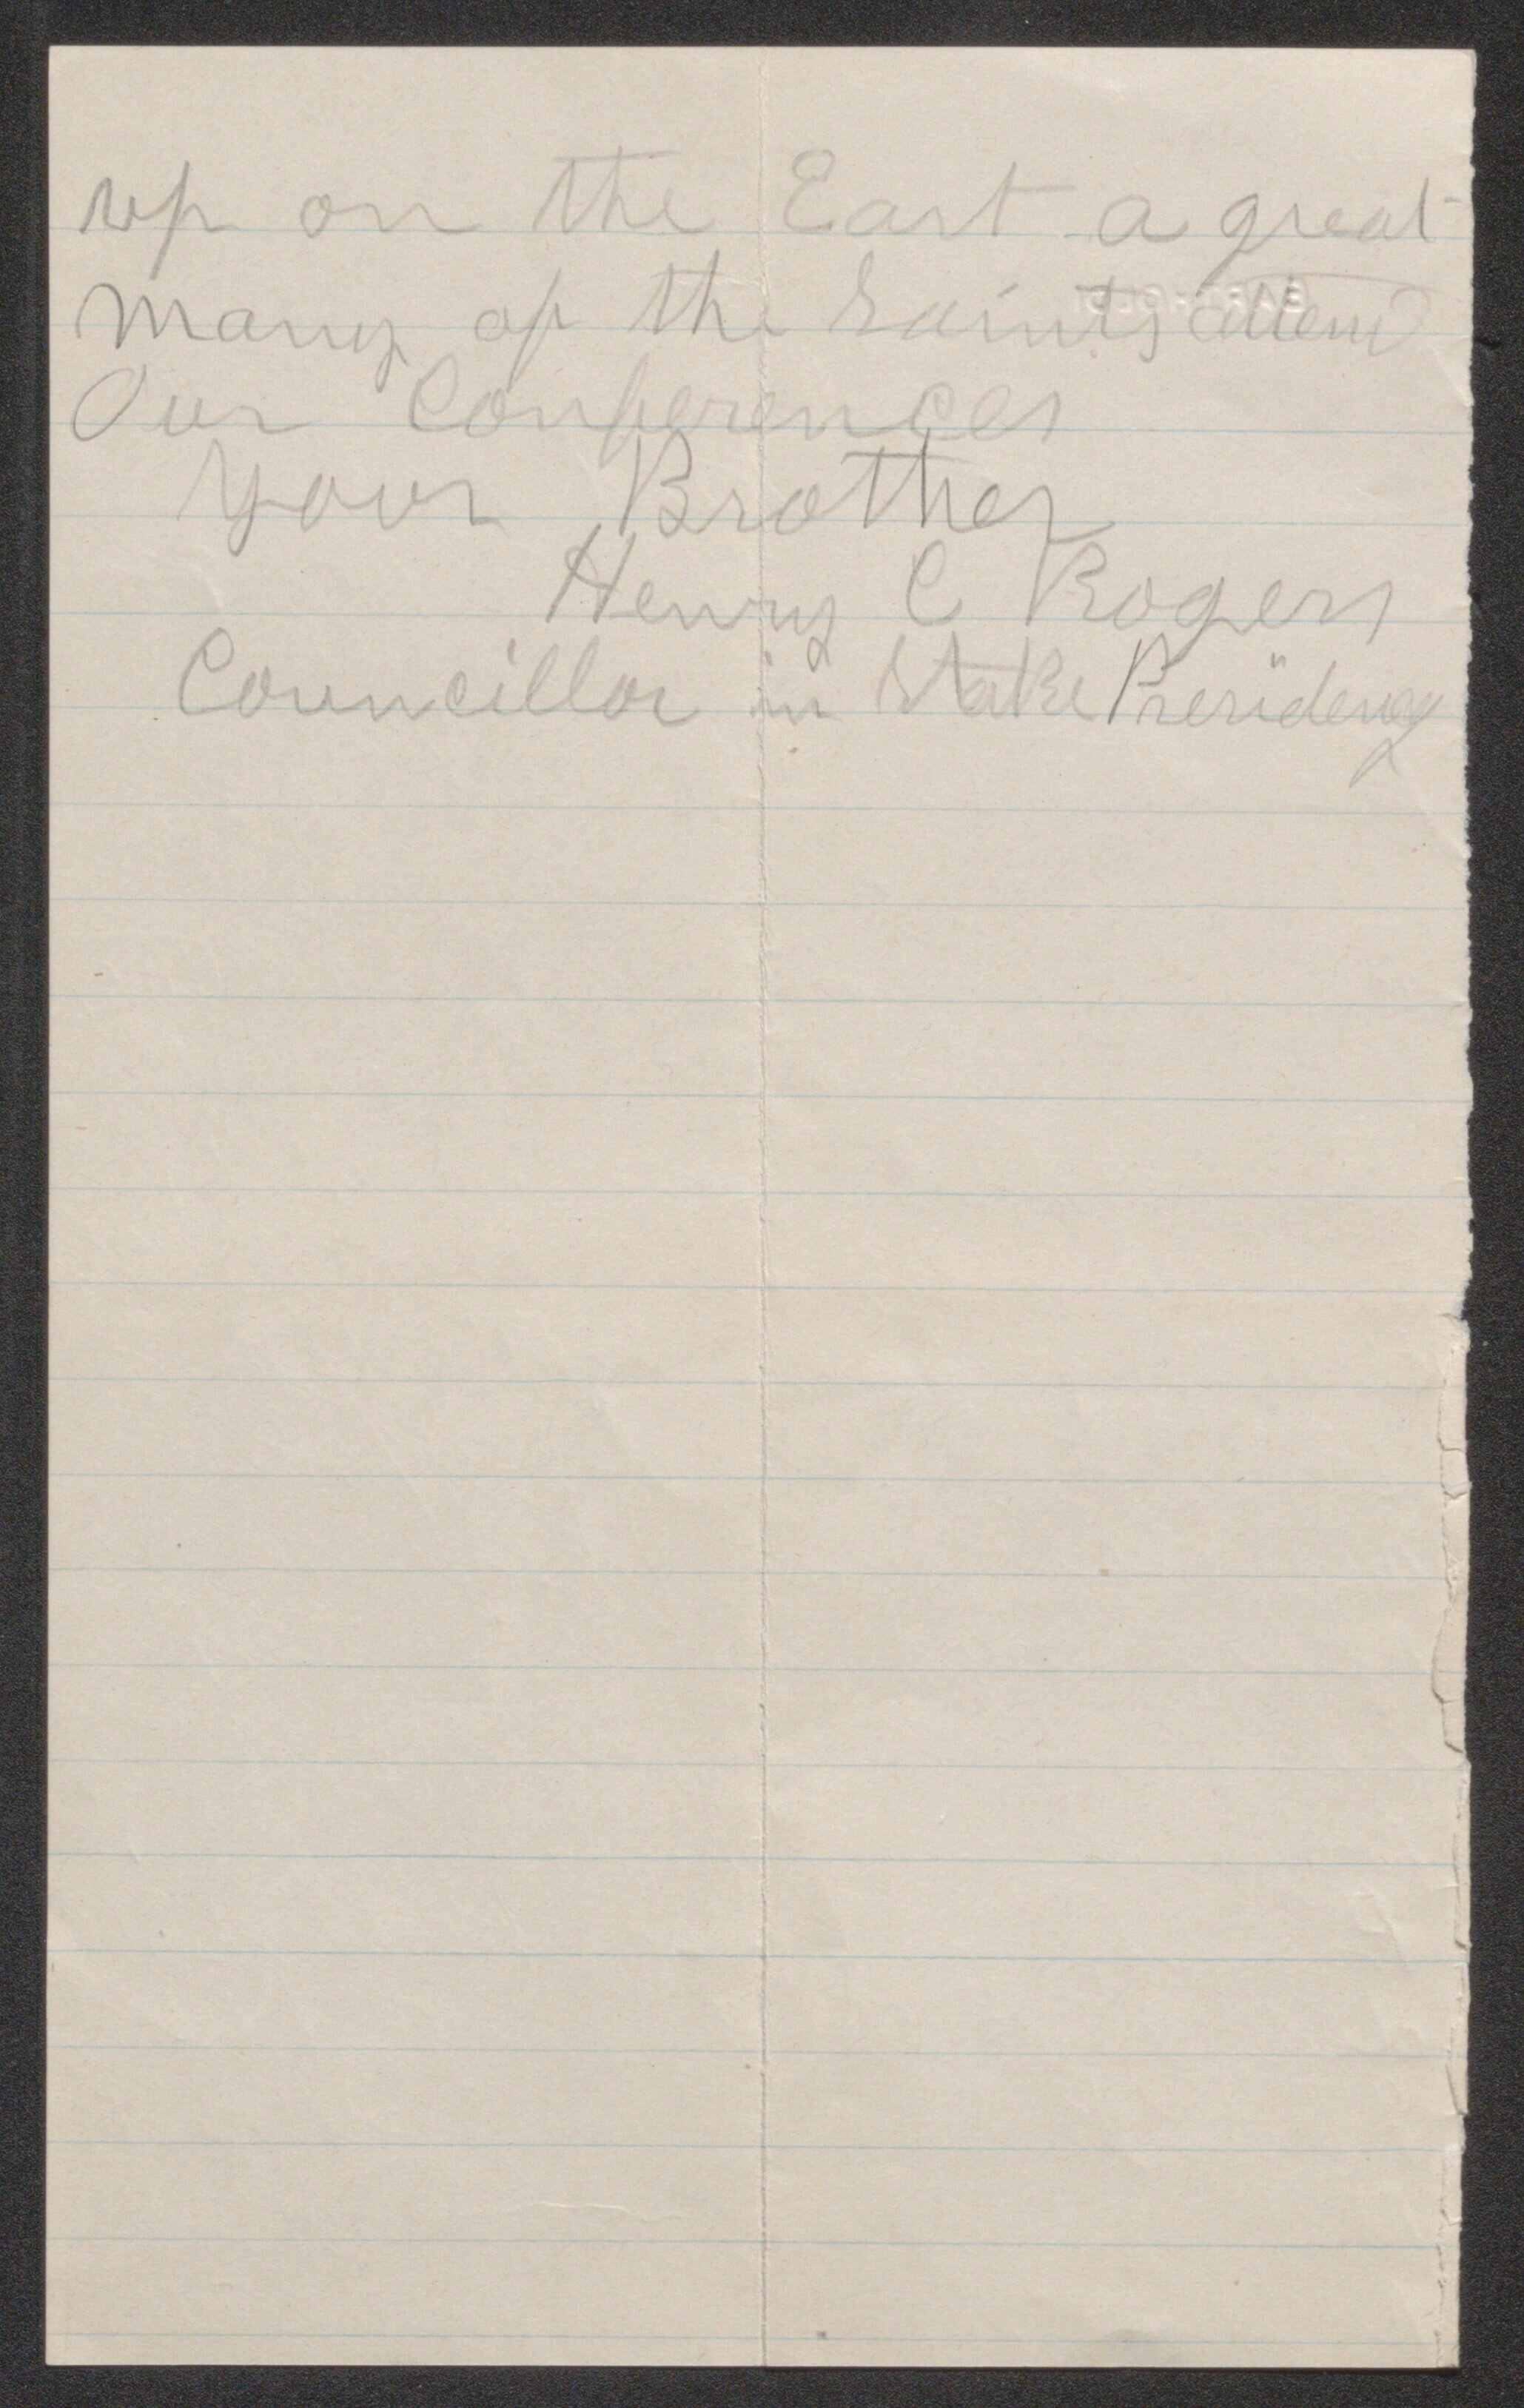 up on the East a great
many of the Saints attend
Our Conferences
Your Brother
Henry C Rogers
Councillor in Stake Presidency